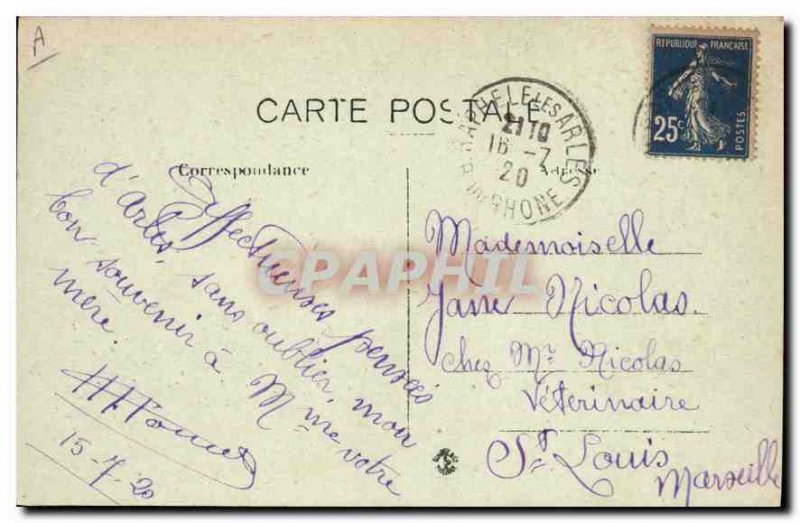 A
CARTE POSTALE
Correspondance
Adresse
REPUBLIQUE FRANÇAISE
25c
POSTES
RAPHELE LES ARLES
21 10
16 -7
20
B. DU RHONE
Affectueuses pensées
d'Arles, sans oublier, mon
bon souvenir à Mme votre
mère
15-7-20
Mademoiselle
Jane Nicolas
chez Mr Nicolas
Véterinaire
St Louis
Marseille
CPAPHIL